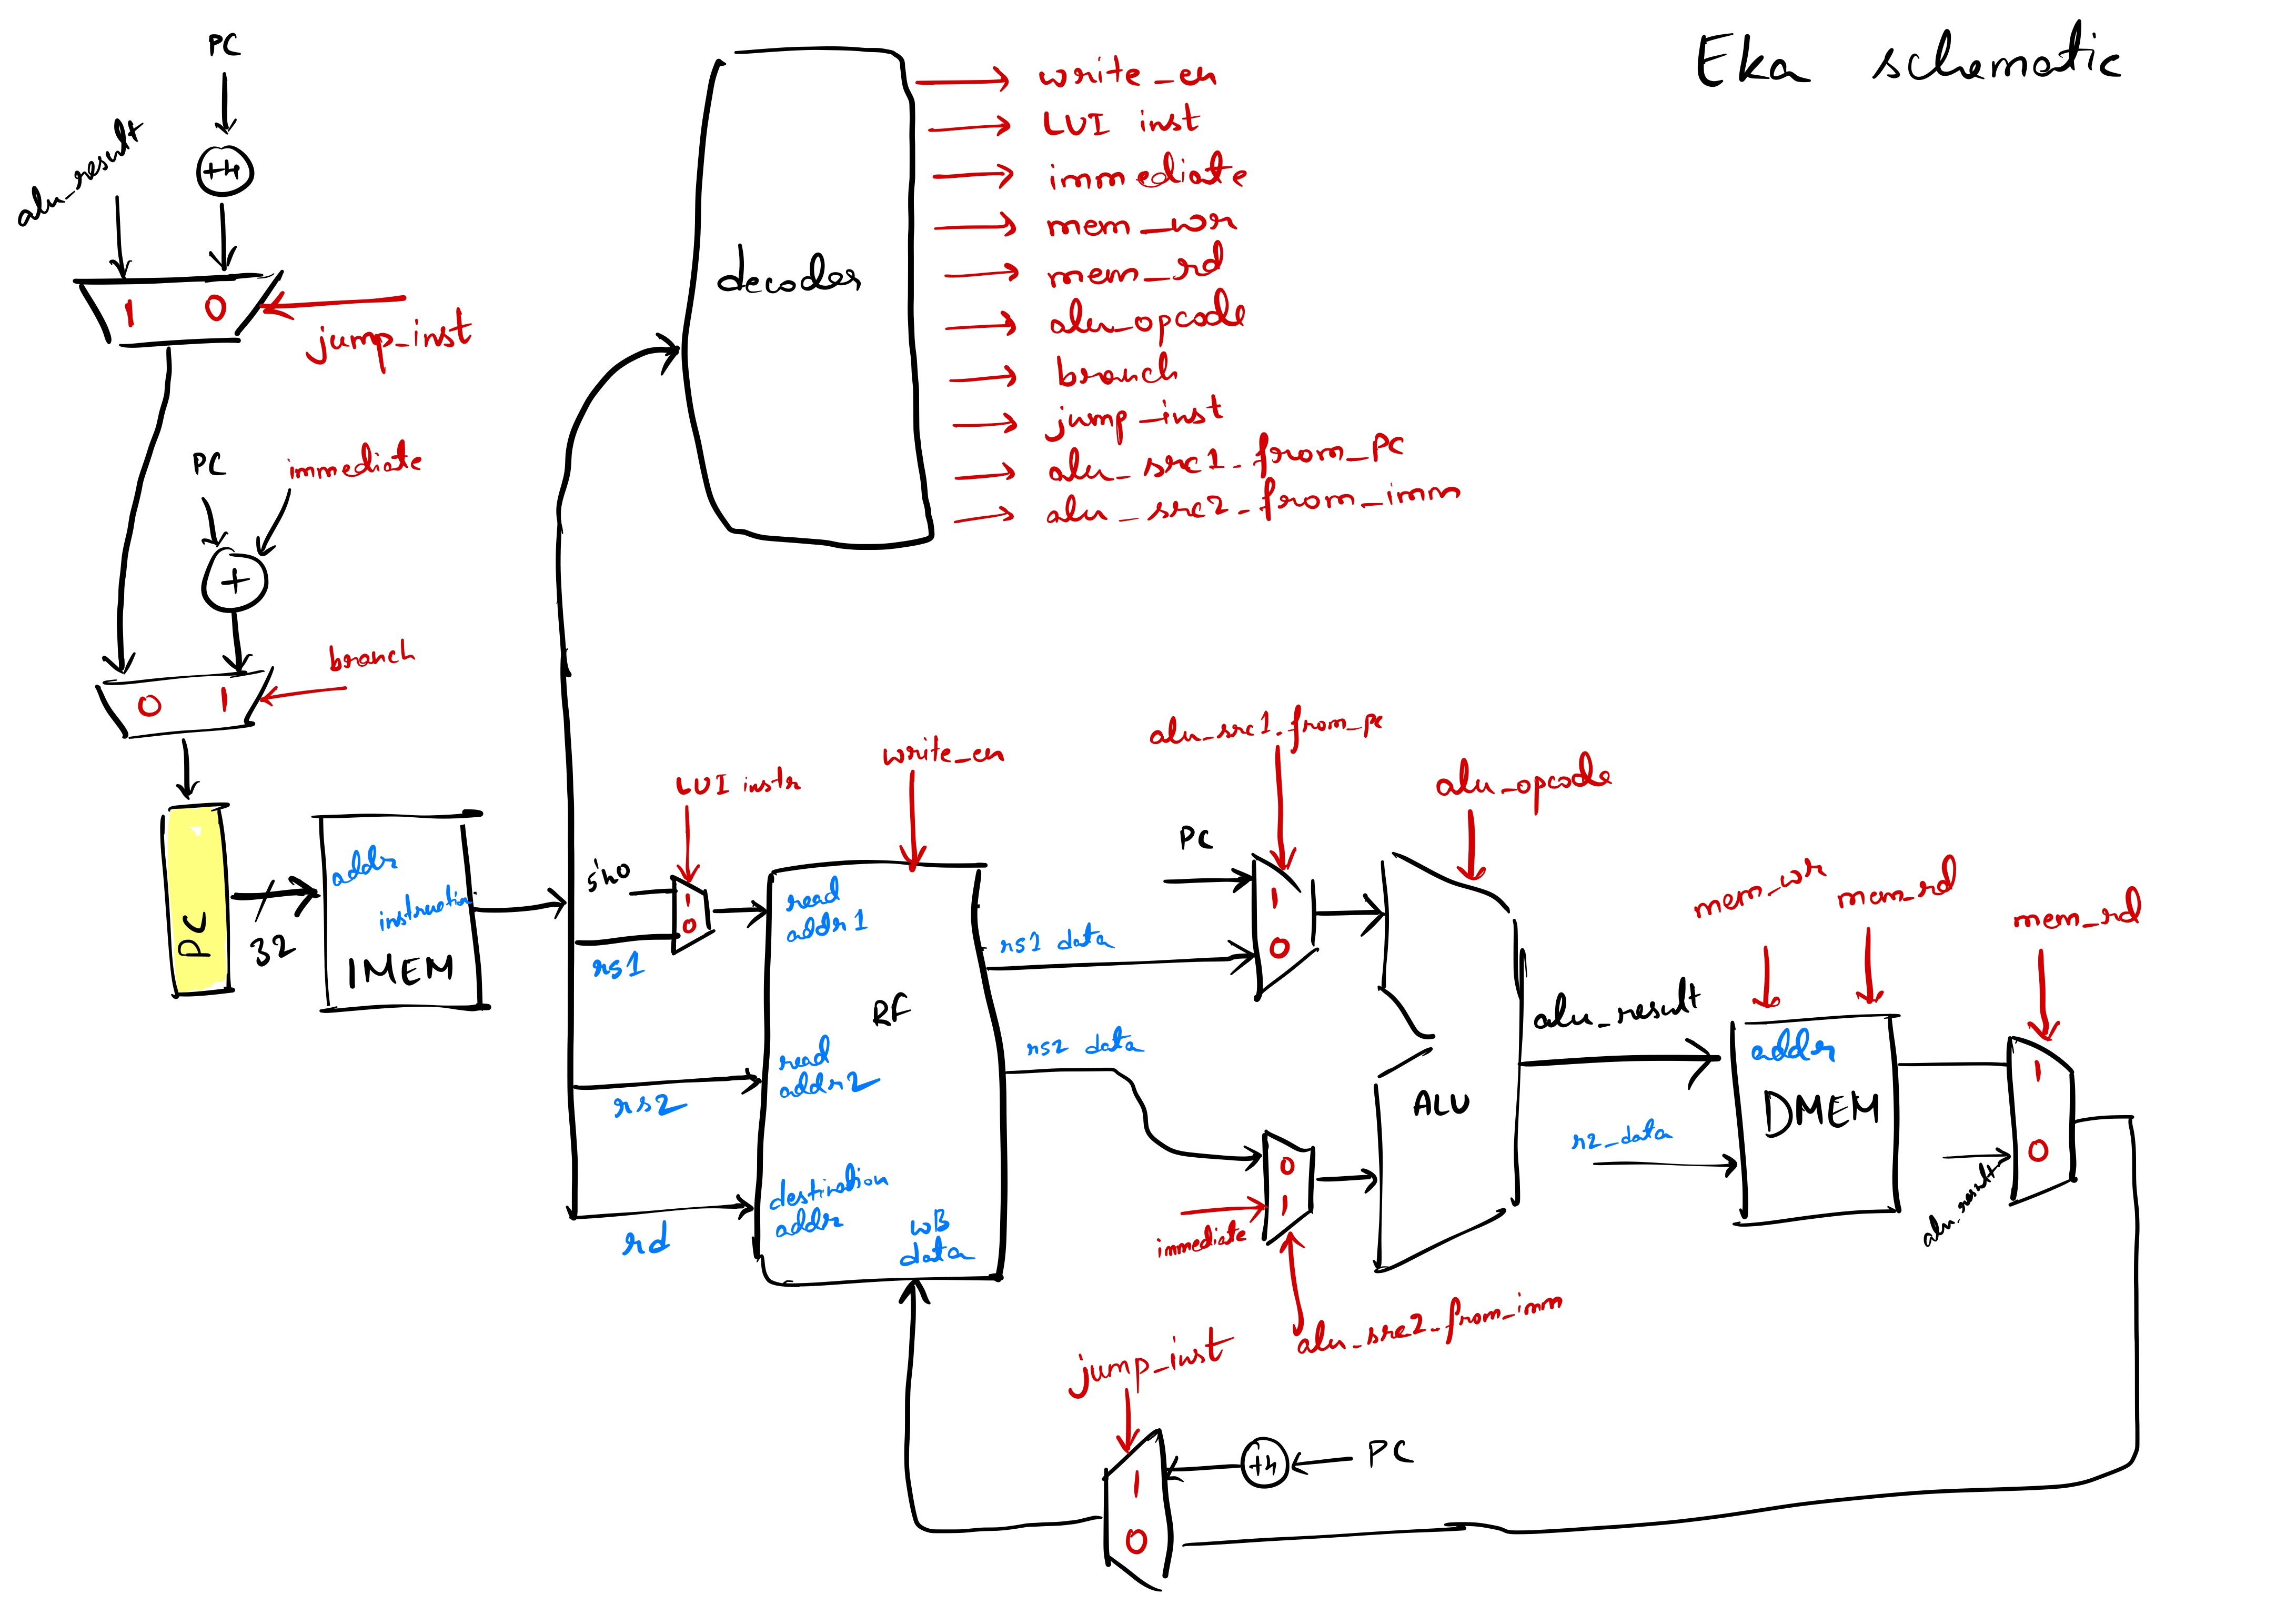 Eka schematic
PC
alu_result
+4
1 0
jump_inst
PC
immediate
+
branch
0 1
PC
32
addr
instruction
IMEM
decoder
write_en
LUI inst
immediate
mem_wr
mem_rd
alu_opcode
branch
jump_inst
alu_src1_from_PC
alu_src2_from_imm
LUI instr
write_en
1
0
rs1
rs2
rd
read
addr1
RF
read
addr2
destination
addr
WB
data
rs1 data
rs2 data
alu_src1_from_pc
PC
1
0
0
1
immediate
alu_src2_from_imm
alu_opcode
ALU
alu_result
r2_data
mem_wr
mem_rd
addr
DMEM
mem_rd
1
0
alu_result
jump_inst
1
0
+4
PC